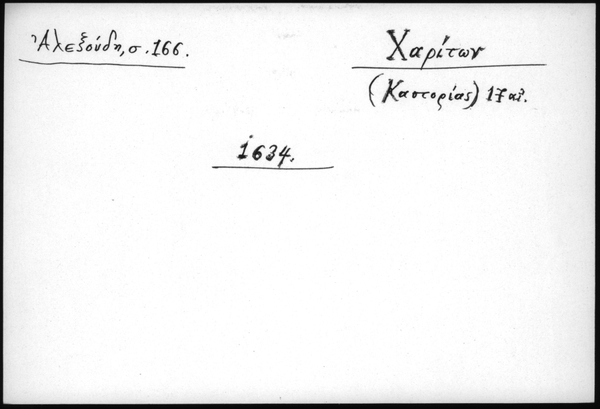 Ἀλεξούδη, σ. 166.
Χαρίτων
(Καστορίας) 17 αἰ.
1634.